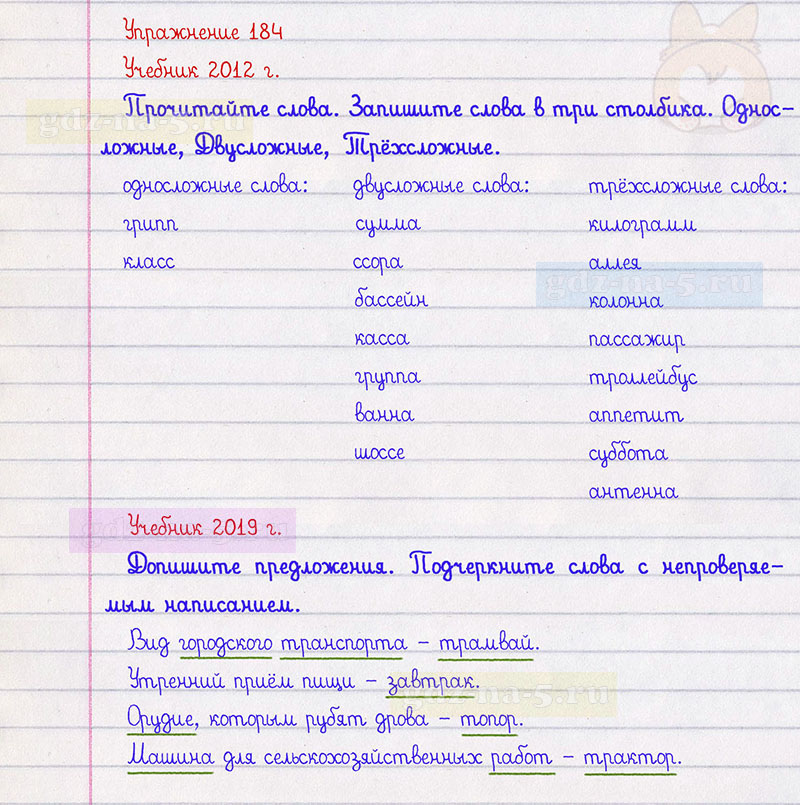 Упражнение 184
Учебник 2012 г.
Прочитайте слова. Запишите слова в три столбика. Однос-
ложные, Двусложные, Трёхсложные.
односложные слова: двусложные слова: трёхсложные слова:
грипп сумма килограмм
класс ссора аллея
бассейн колонна
касса пассажир
группа троллейбус
ванна аппетит
шоссе суббота
антенна
Учебник 2019 г.
Допишите предложения. Подчеркните слова с непроверяе-
мым написанием.
Вид городского транспорта – трамвай.
Утренний приём пищи – завтрак.
Орудие, которым рубят дрова – топор.
Машина для сельскохозяйственных работ – трактор.
gdz-na-5.ru
gdz-na-5.ru
gdz-na-5.ru
gdz-na-5.ru